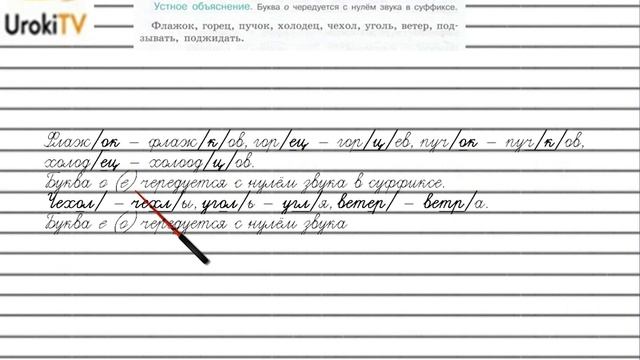 UrokiTV
Устное объяснение. Буква о чередуется с нулём звука в суффиксе.
Флажок, горец, пучок, холодец, чехол, уголь, ветер, под-
зывать, поджидать.
Флаж/ок – флаж/к/ов, гор/ец – гор/ц/ев, пуч/ок – пуч/к/ов,
холод/ец – холоод/ц/ов.
Буква о (е) чередуется с нулём звука в суффиксе.
Чехол/ – чехл/ы, угол/ь – угл/я, ветер/ – ветр/а.
Буква е (о) чередуется с нулём звука